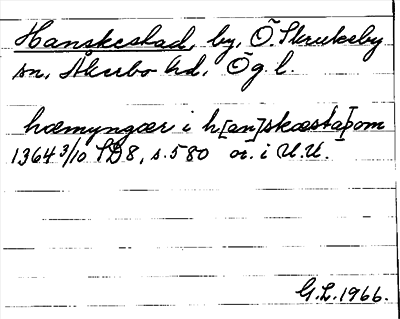 Hanskestad, by, Ö. Skrukeby
sn, Åkerbo hd, Ög. l.
hæmyngær i h[an]skæstaþom
1364 3/10 SD8, s. 580 or. i U.U.
G.L. 1966.